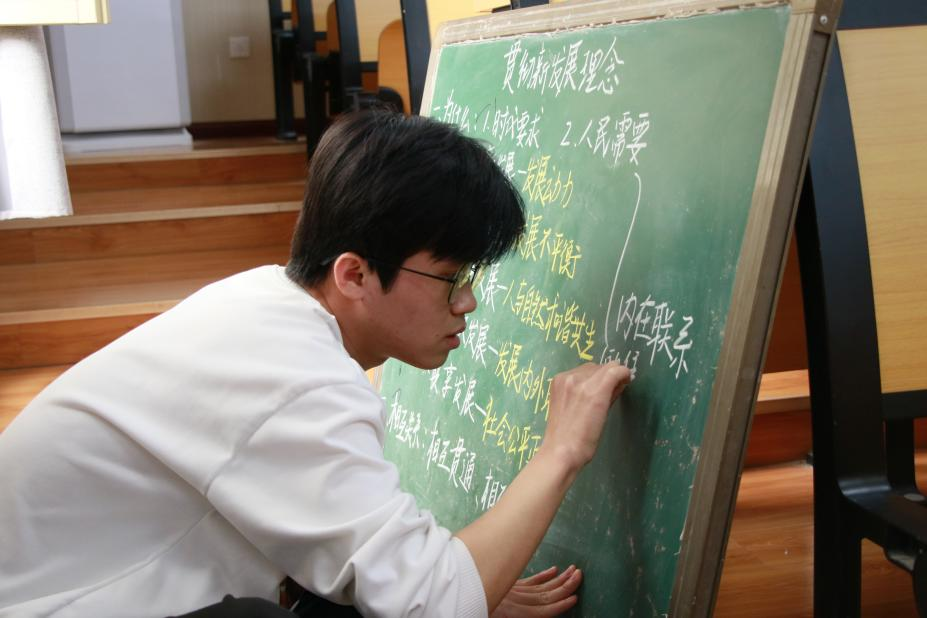 贯彻新发展理念
一为什么:1.时代要求 2.人民需要
展—发展动力
发展不平衡
展—人与自然和谐共生
发展—发展内外
享发展—社会公平正
内在联系
相互贯通、相